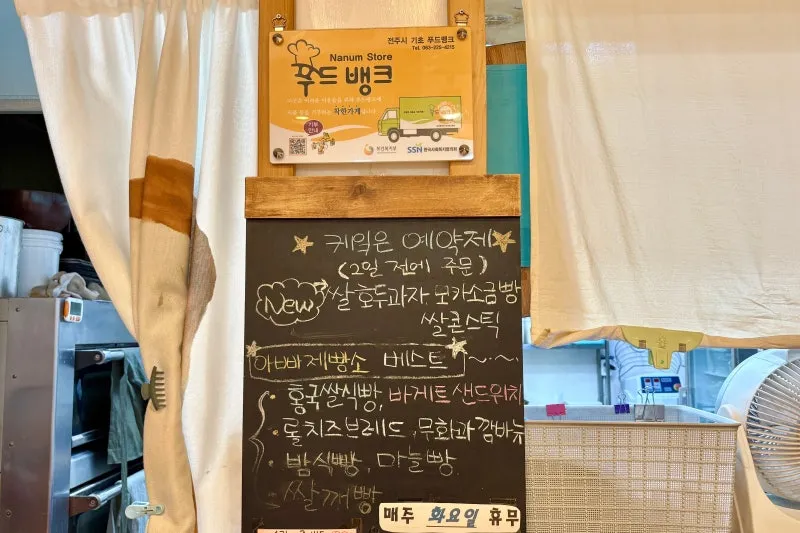 전주시 기초 푸드뱅크
Tel. 063-225-4215
Nanum Store
푸드 뱅크
착한가게
기부
안내
SSN 한국사회복지협의회
케익은 예약제
(2일 전에 주문)
New 쌀호두과자 모카소금빵
쌀콘스틱
아빠제빵소 베스트 ~.~.
· 홍국쌀식빵, 바게트샌드위치
· 롤치즈브레드, 무화과깜바뉴
· 밤식빵, 마늘빵
· 쌀깨빵
매주 화요일 휴무